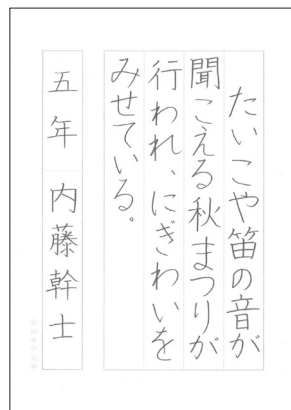 たいこや笛の音が
聞こえる秋まつりが
行われ、にぎわいを
みせている。
五年 内藤幹士